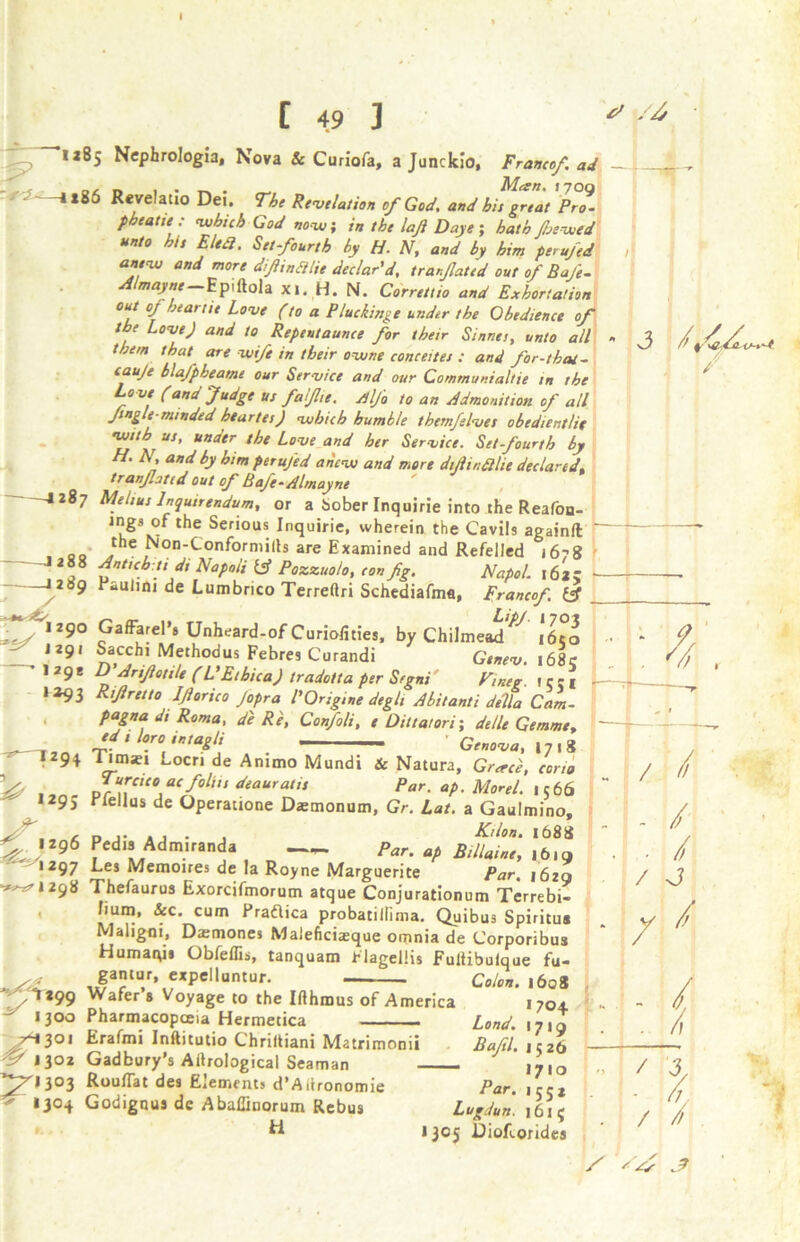 [ 49 ]
1285 Nephrologia, Nova & Curiosa, a Junckio, Francof. ad
Mæn. 1709
1286 Revelatio Dei. The Revelation of God, and his great Pro-
pheatie: which God now; in the last Daye; hath shewed
unto his Elect. Set-fourth by H. N, and by him perused
anew and more distinctlie declar'd, translated out of Base-
Almayne—Epistola XI. H. N. Correttio and Exhortation
out of heartie Love (to a Pluckinge under the Obedience of
the Love) and to Repentaunce for their Sinnes, unto all
them that are wise in their owne conceites: and for-that-
cause blaspheame our Service and our Communialtie in the
Love (and Judge us falslie. Also to an Admonition of all
single-minded heartes) which humble themselves obedientlie
with us, under the Love and her Service. Set-fourth by
H. N, and by him perused anew and more distinctlie declared,
translated out of Base-Almayne
1287 Melius Inquirendum, or a Sober Inquirie into the Reason-
ings of the Serious Inquirie, wherein the Cavils against
the Non-Conformists are Examined and Refelled 1678
1288 Antich ti di Napoli & Pozzuolo, con fig. Napol. 1625
1289 Paulini de Lumbrico Terrestri Schediasma, Francof. &
Lips. 1703
1290 Gaffarel's Unheard-of Curiosities, by Chilmead 1650
1291 Sacchi Methodus Febres Curandi Genev. 1685
1292 D'Aristotile (L'Ethica) tradotta per Segni Vineg. 1551
1293 Ristretto Istorico sopra l'Origine degli Abitanti della Cam-
pagna di Roma, de Re, Consoli, e Dittatori; delle Gemme,
ed i loro intagli —— Genova, 1718
1294 Timæi Locri de Animo Mundi & Natura, Græcè, corio
Turcico ac foliis deauratis Par. ap. Morel. 1566
1295 Psellus de Operatione Dæmonum, Gr. Lat. a Gaulmino,
Kilon. 1688
1296 Pedis Admiranda —— Par. ap Billaine, 1619
1297 Les Memoires de la Royne Marguerite Par. 1629
1298 Thesaurus Exorcismorum atque Conjurationum Terrebi-
lium, &c. cum Practica probatissima. Quibus Spiritus
Maligni, Dæmones Maleficiæque omnia de Corporibus
Humanis Obsessis, tanquam Flagellis Fustibusque fu-
gantur, expelluntur. —— Colon. 1608
1299 Wafer's Voyage to the Isthmus of America 1704
1300 Pharmacopœia Hermetica —— Lond. 1719
1301 Erasmi Institutio Christiani Matrimonii Basil. 1526
1302 Gadbury's Astrological Seaman —— 1710
1303 Roussat des Elements d'Astronomie Par. 1552
1304 Godignus de Abassinorum Rebus Lugdun. 1615
H 1305 Dioscorides